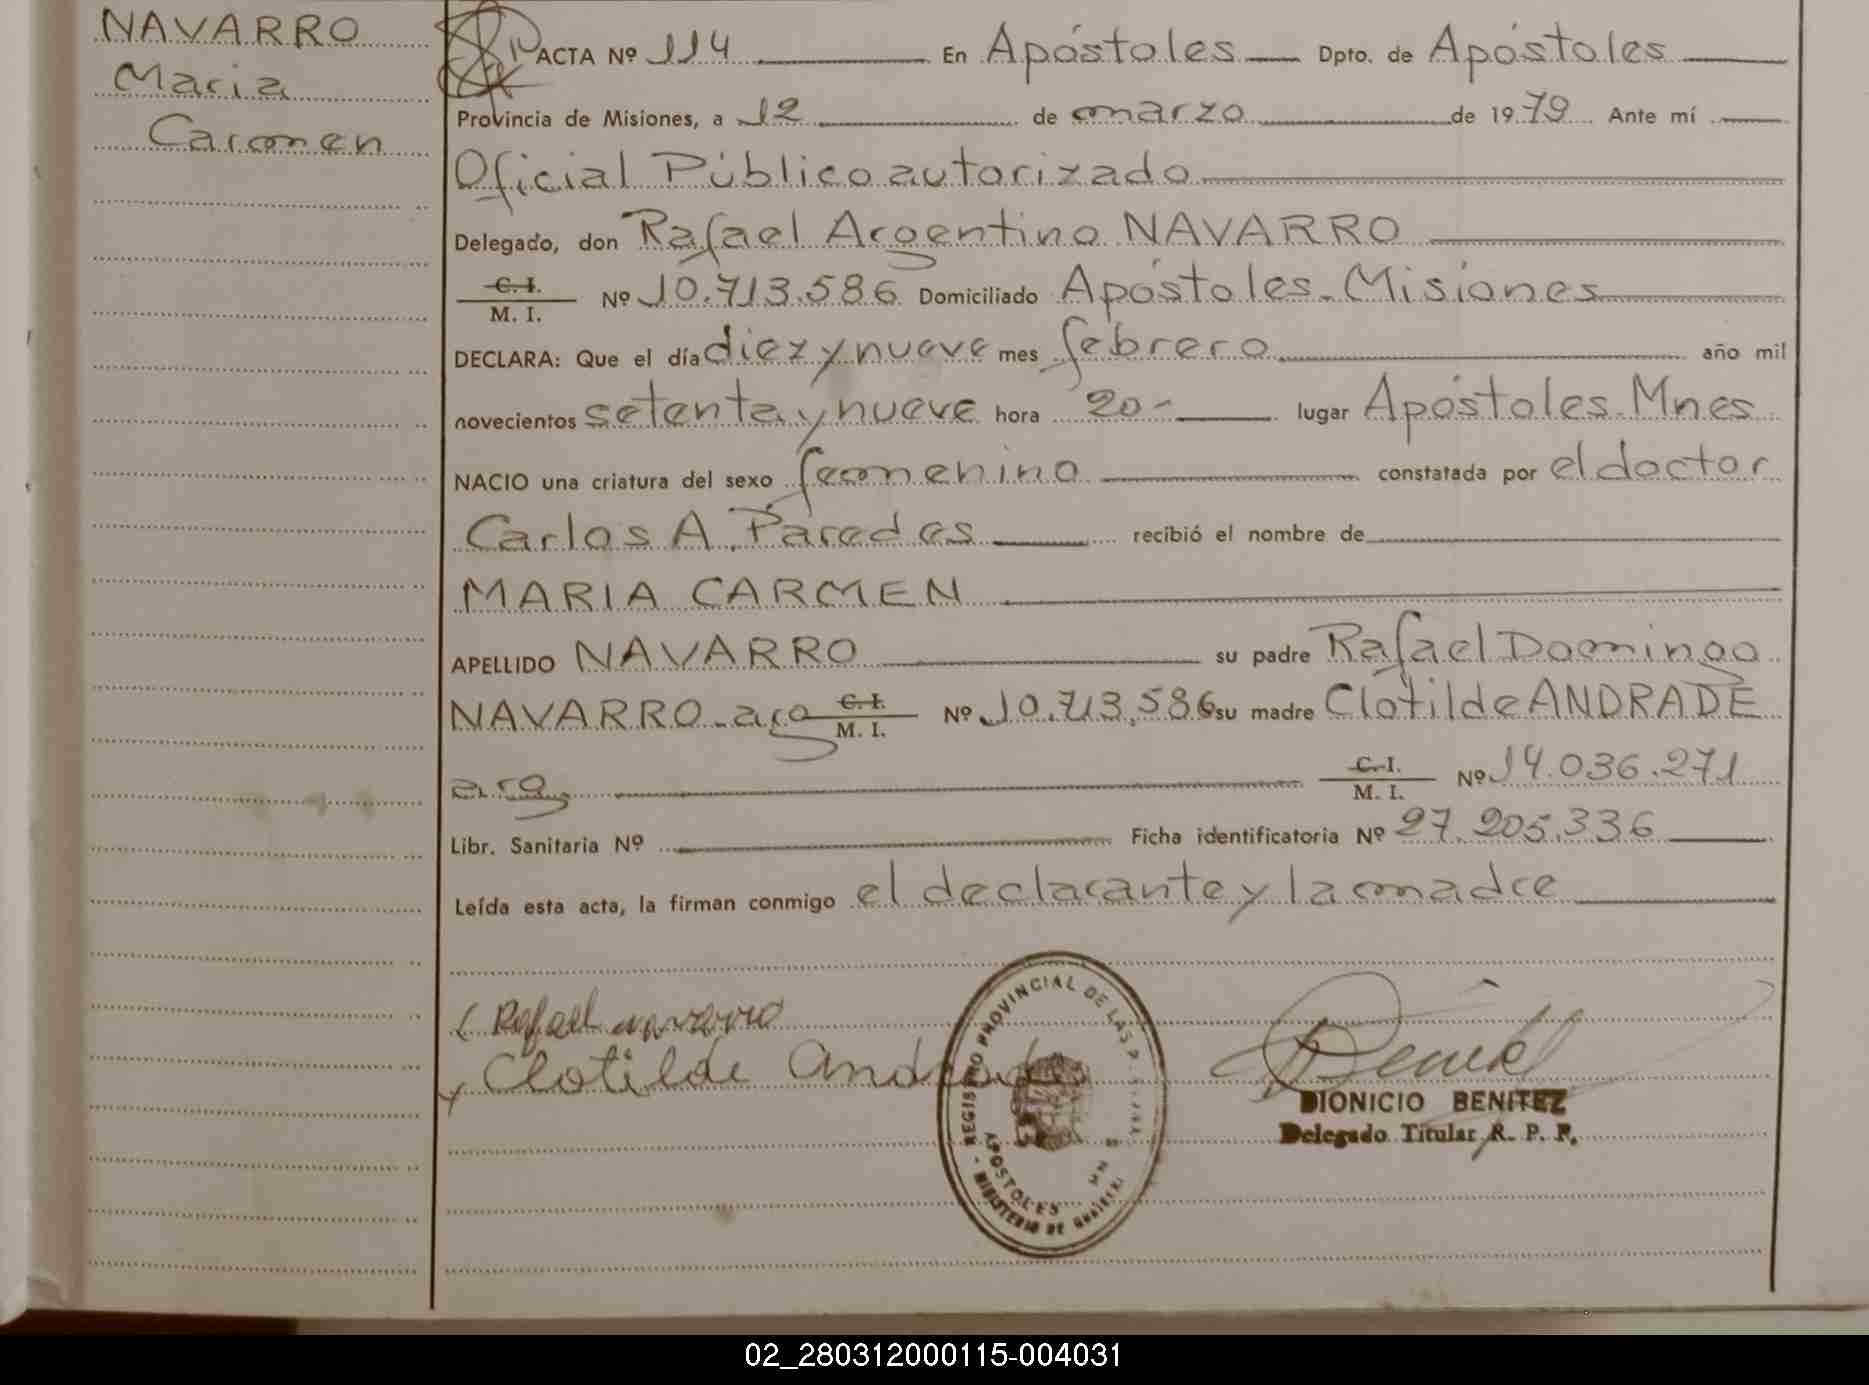 NAVARRO
Maria
Carmen
ACTA Nº 114 En Apóstoles Dpto. de Apóstoles
Provincia de Misiones, a 12 de marzo de 1979 Ante mí
Oficial Público autorizado
Delegado, don Rafael Argentino NAVARRO
C. I.
M. I. Nº 10.713.586 Domiciliado Apóstoles - Misiones
DECLARA: Que el día diez y nueve mes febrero año mil
novecientos setenta y nueve hora 20- lugar Apóstoles Mnes
NACIO una criatura del sexo femenino constatada por el doctor
Carlos A. Paredes recibió el nombre de
MARIA CARMEN
APELLIDO NAVARRO su padre Rafael Domingo
NAVARRO - arg C. I. M. I. Nº 10.713.586 su madre Clotilde ANDRADE
arg C. I. M. I. Nº 14.036.271
Libr. Sanitaria Nº Ficha identificatoria Nº 27.205.336
Leída esta acta, la firman conmigo el declarante y la madre
Rafael navarro
Clotilde Andrade
REGISTRO PROVINCIAL DE LAS P
APOSTOLES MNES
MINISTERIO DE
DIONICIO BENITEZ
Delegado Titular R. P. P.
02_280312000115-004031